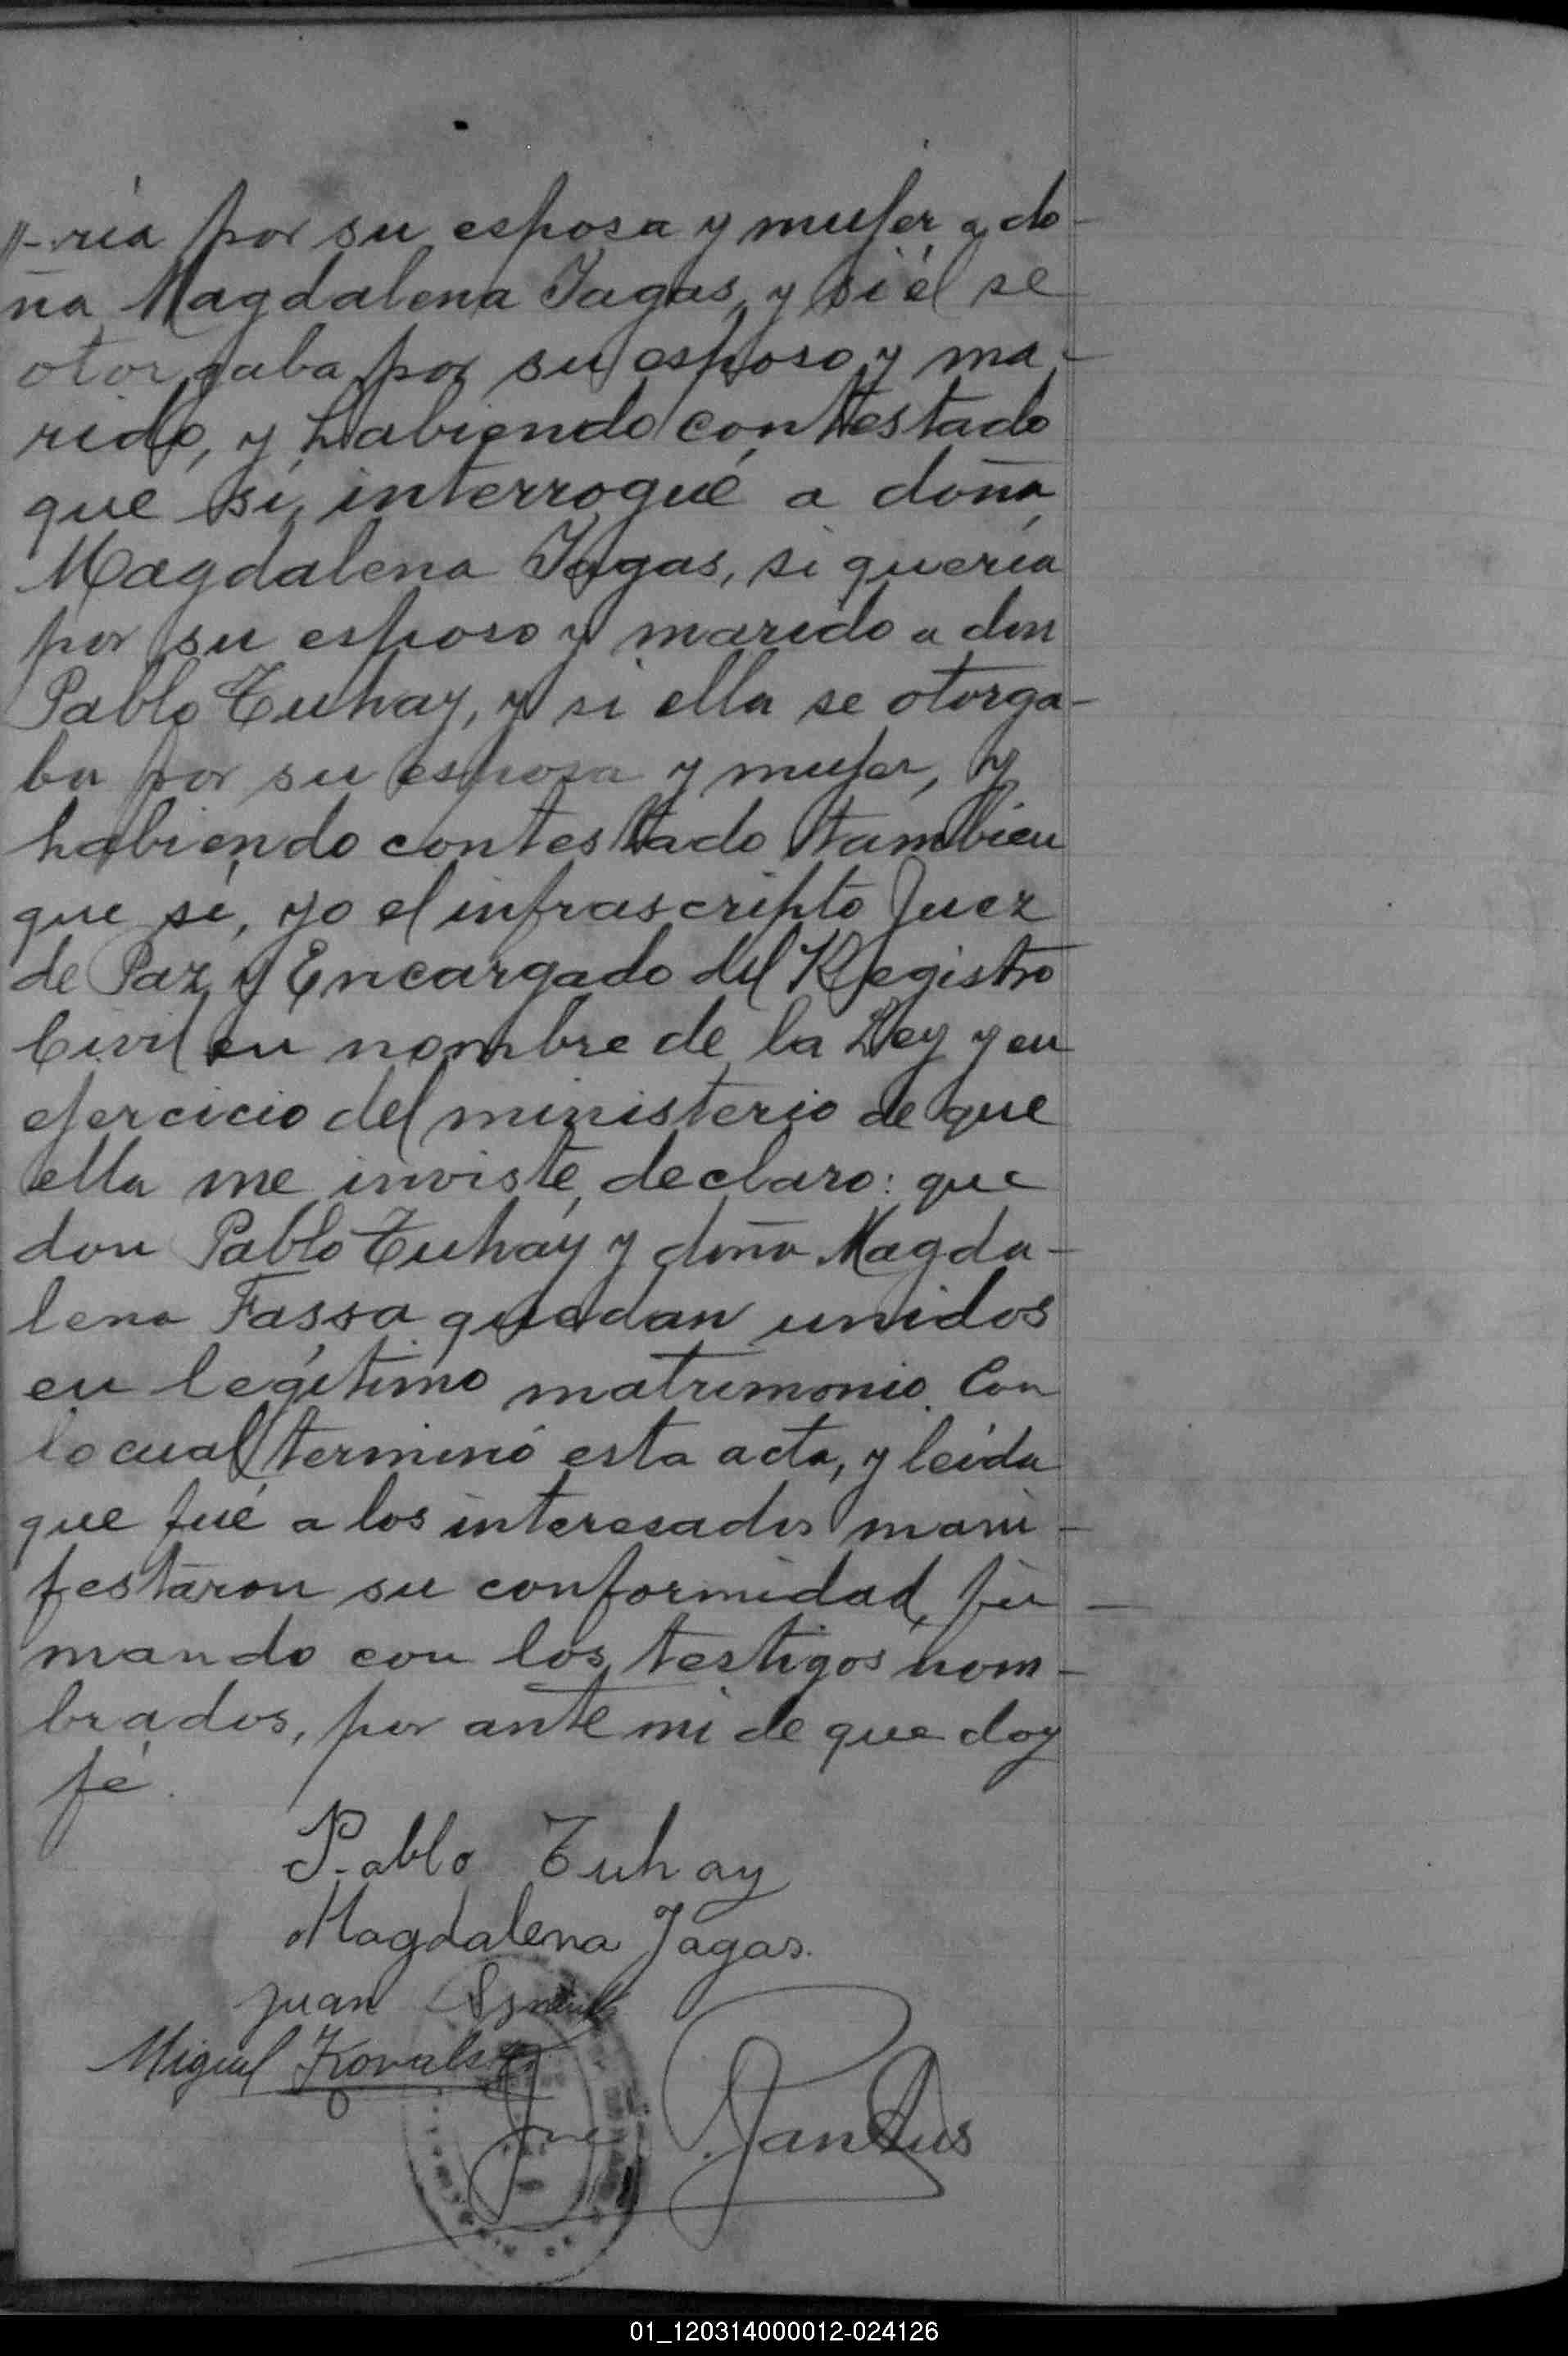 //-ría por su esposa y mujer a do-
ña Magdalena Jagas, y si él se
otorgaba por su esposo y ma-
rido, y habiendo contestado
que sí, interrogué a doña
Magdalena Jagas, si quería
por su esposo y marido a don
Pablo Tuhay, y si ella se otorga-
ba por su esposa y mujer, y
habiendo contestado tambien
que sí, yo el infrascripto Juez
de Paz y Encargado del Registro
Civil en nombre de la Ley y en
ejercicio del ministerio de que
ella me inviste, declaro: que
don Pablo Tuhay y doña Magda-
lena Fassa quedan unidos
en legítimo matrimonio. Con
lo cual terminó esta acta, y leida
que fué a los interesados mani-
festaron su conformidad, fir-
mando con los testigos nom-
brados, por ante mi de que doy
fé.
Pablo Tuhay
Magdalena Jagas.
Juan
Miguel
01_120314000012-024126